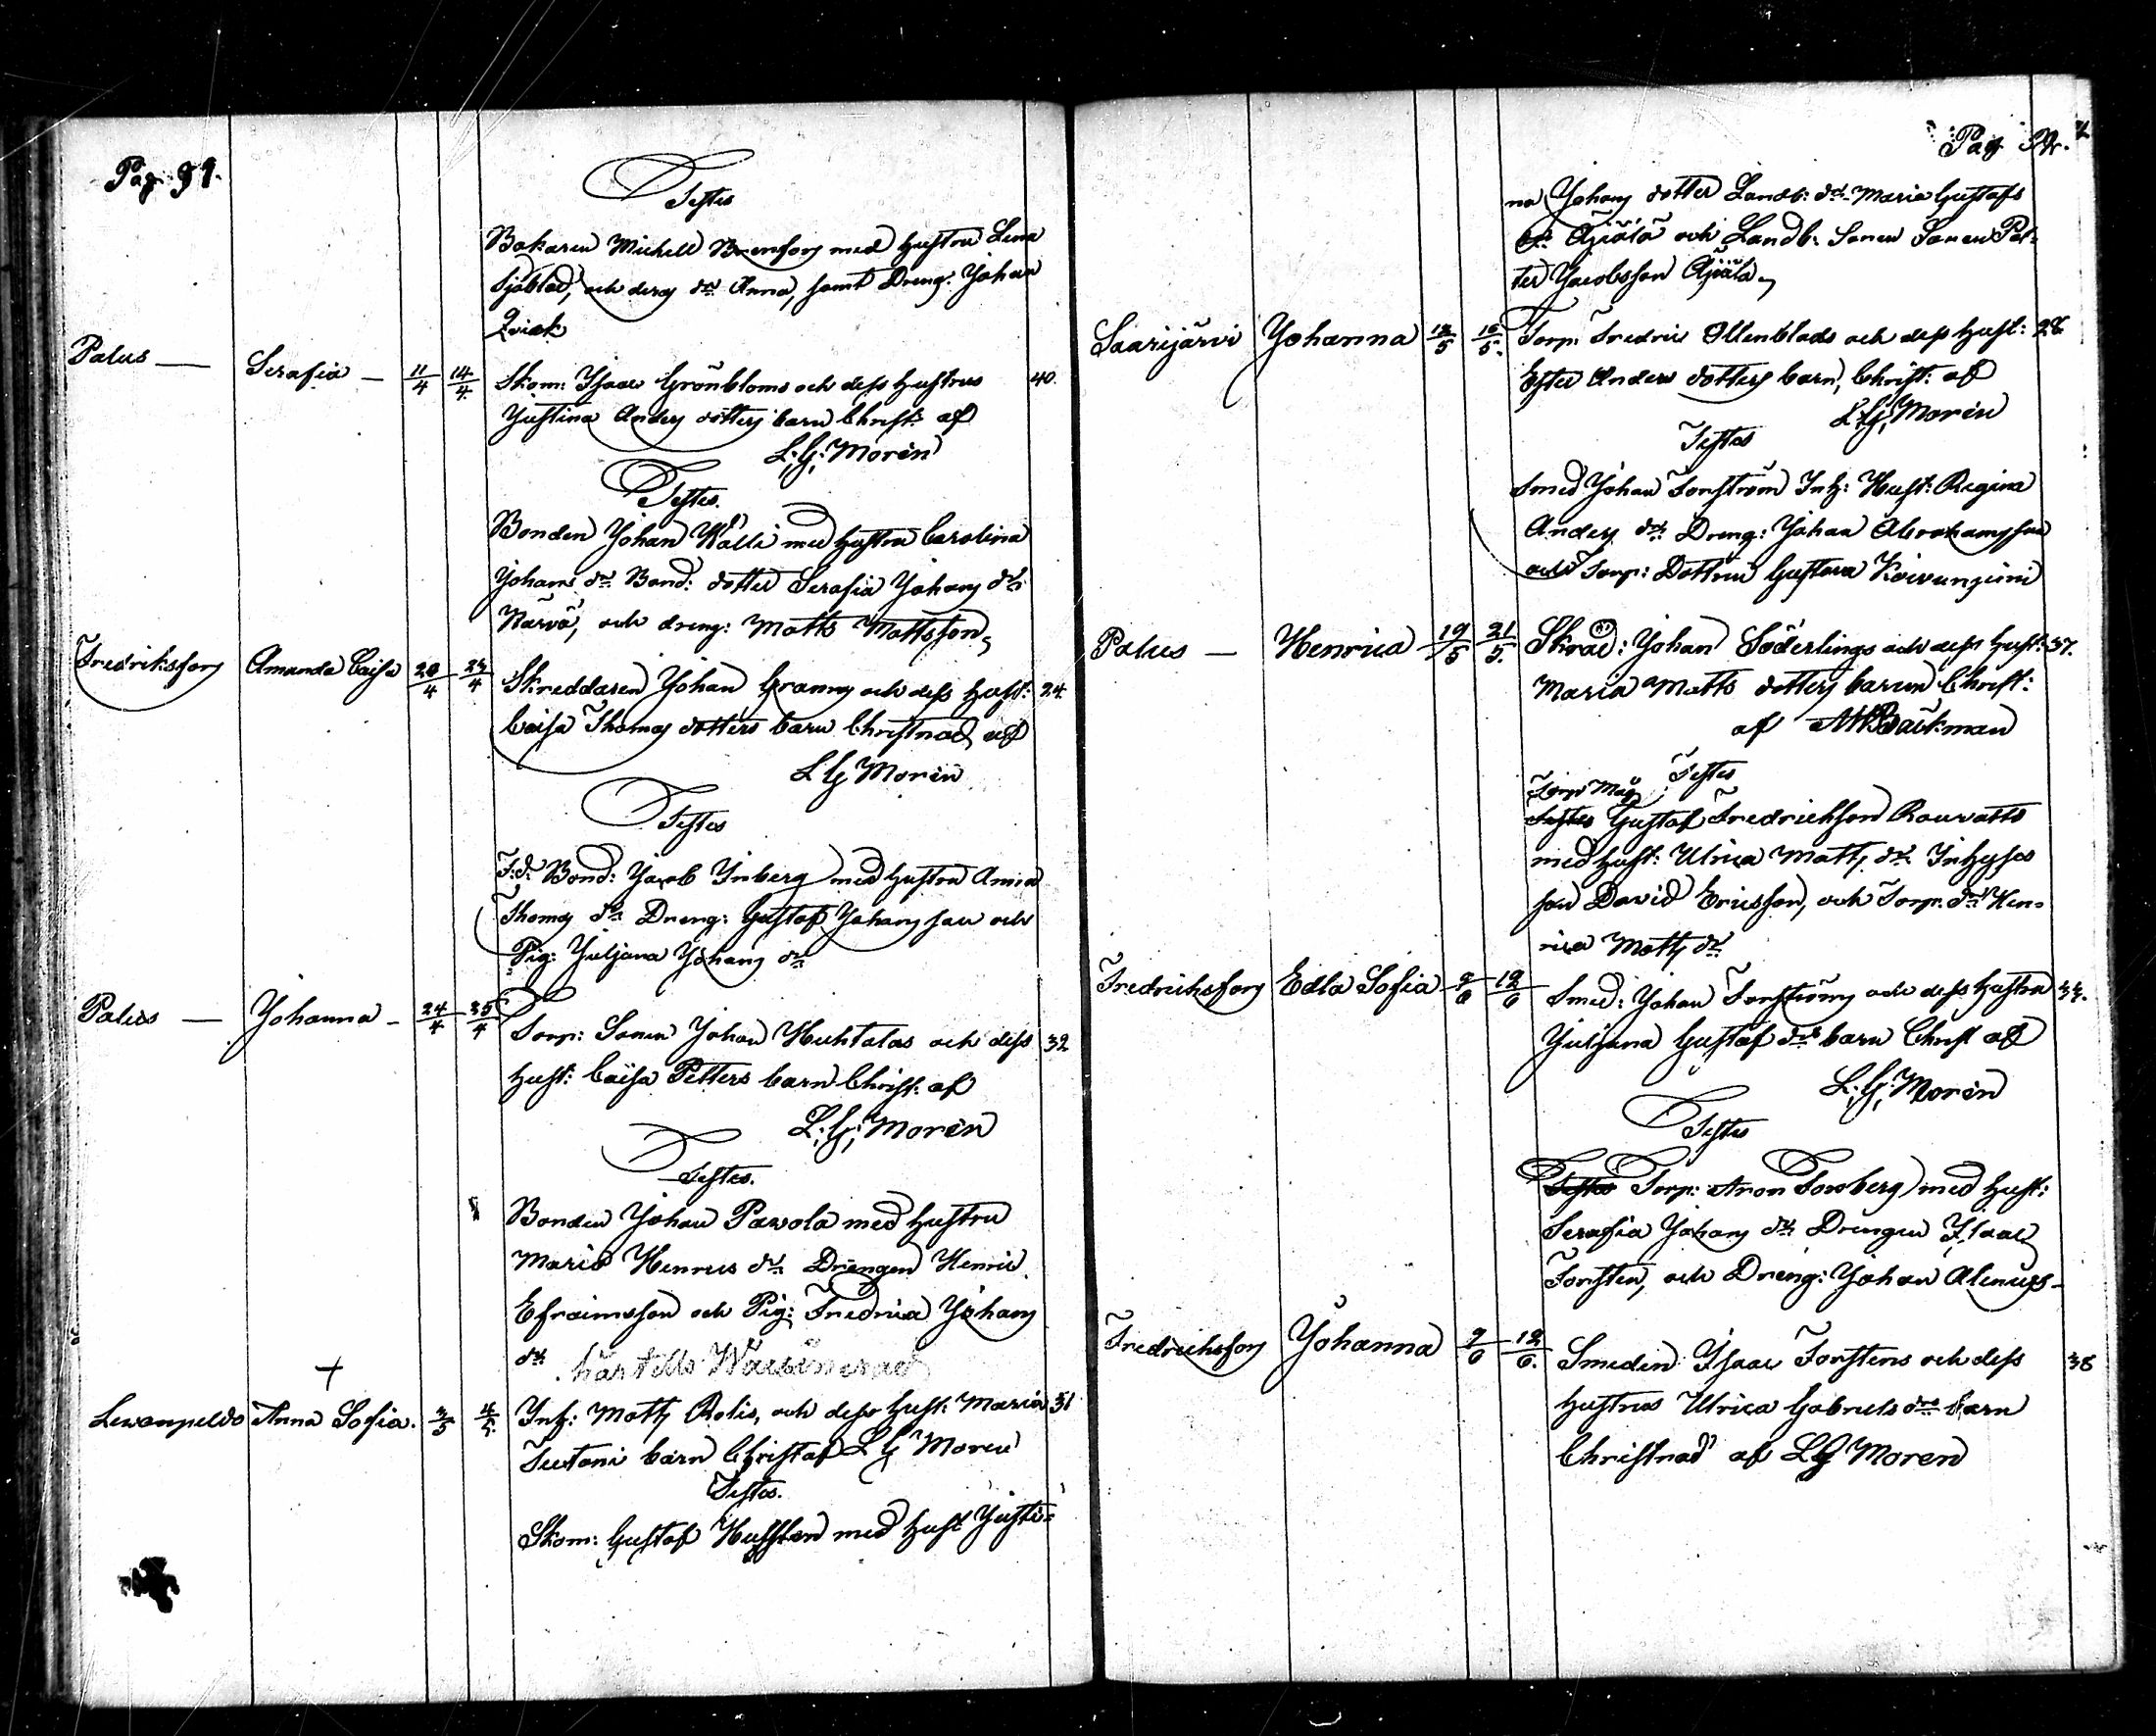 Pag. 91.
Testes
Bakaren Michell Brenfors med hustru Lena
Sjöblad, och deras dr Anna, samt Dreng: Johan
Qvick
Palus — Serafia — 11/4 14/4 Skom: Isaac Grönbloms och dess hustrus 40.
Justina Anders dotters barn Christ: af
L: G: Morén
Testes.
Bonden Johan Kalli med hustru Carolina
Johans dr Bond: dotter Serafia Johans dr
Närvä, och dreng: Matts Mattsson,
Fredriksfors Amanda Caisa 20/4 23/4 Skreddaren Johan Granns och dess hust: 24.
Caisa Thomas dotters barn Christnad af
L G Morén
Testes
F: d: Bond: Jacob Inberg med hustru Anna
Thomas dr Dreng: Gustaf Johansson och
Pig: Juljana Johans dr
Palus — Johanna — 24/4 25/4 Torp: Sonen Johan Huhtalas och dess 32
hust: Caisa Petters barn Christ: af
L: G: Morén
Testes.
Bonden Johan Pawola med hustru
Maria Henrics dr Drengen Henric
Efraimsson och Pig: Fredrica Johans
dr
Lewanpeldo Anna Sofia. 3/5 4/5 Inh: Matts Rolis, och dess hust: Maria 31
barn Christ af L G Morén
Testes.
Skom: Gustaf med hust Justi=
Pag
na Johans dotter Landb: dr Maria Gustafs
dr Äjälä och Landb: Sonen Sonen Pet=
ter Jacobsson Äjälä,
Saarijärvi Johanna 12/5 16/5 Torp: Fredric Ollenblads och dess hust: 28
Ester Anders dotters barn, Christ: af
L: G: Morén
Testes
Smed Johan Forsström Inh: Hust: Regina
Anders dr Dreng: Johan Abrahamsson
och Torp: Dottren Gustava Koivuniemi
Palus — Henrica 19/5 21/5 Skrad: Johan Söderlings och dess hust: 37.
Maria Matts dotters barn Christ:
af Backman
Testes
Torp Måg
Testes Gustaf Fredrichson Rouvatts
med hust: Ulrica Matts dr Inhyses
son David Ericsson, och Torp: dr Hen=
rica Matts dr
Fredrichsfors Edla Sofia 9/6 12/6 Smed: Johan Forsströms och dess hustru
Juljana Gustaf drs barn Christ af
L: G: Morén
Testes
Testes Torp: Aron Forsberg med hust:
Serafia Johans dr Drengen Isaac
Forsten, och Dreng: Johan Alenius
Fredrichsfors Johanna 9/6 12/6 Smeden Isaac Forstens och dess 38
hustrus Ulrica Gabriels drs barn
Christnad af L G Morén